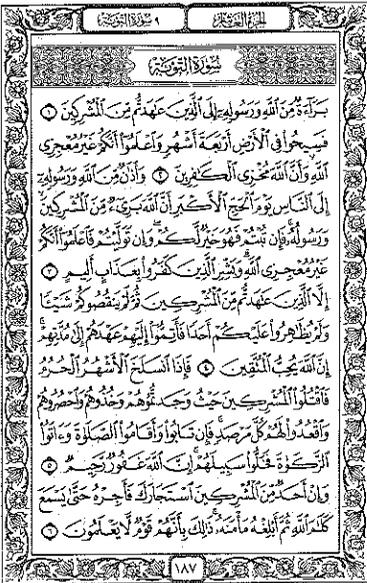 الجزء العاشر
٩ سورة التوبة
سورة التوبة
بَرَآءَةٌ مِّنَ ٱللَّهِ وَرَسُولِهِۦٓ إِلَى ٱلَّذِينَ عَـٰهَدتُّم مِّنَ ٱلْمُشْرِكِينَ ١
فَسِيحُوا۟ فِى ٱلْأَرْضِ أَرْبَعَةَ أَشْهُرٍ وَٱعْلَمُوٓا۟ أَنَّكُمْ غَيْرُ مُعْجِزِى
ٱللَّهِ وَأَنَّ ٱللَّهَ مُخْزِى ٱلْكَـٰفِرِينَ ٢ وَأَذَٰنٌ مِّنَ ٱللَّهِ وَرَسُولِهِۦٓ
إِلَى ٱلنَّاسِ يَوْمَ ٱلْحَجِّ ٱلْأَكْبَرِ أَنَّ ٱللَّهَ بَرِىٓءٌ مِّنَ ٱلْمُشْرِكِينَ
وَرَسُولُهُۥ فَإِن تُبْتُمْ فَهُوَ خَيْرٌ لَّكُمْ وَإِن تَوَلَّيْتُمْ فَٱعْلَمُوٓا۟ أَنَّكُمْ
غَيْرُ مُعْجِزِى ٱللَّهِ وَبَشِّرِ ٱلَّذِينَ كَفَرُوا۟ بِعَذَابٍ أَلِيمٍ ٣
إِلَّا ٱلَّذِينَ عَـٰهَدتُّم مِّنَ ٱلْمُشْرِكِينَ ثُمَّ لَمْ يَنقُصُوكُمْ شَيْـًٔا
وَلَمْ يُظَـٰهِرُوا۟ عَلَيْكُمْ أَحَدًا فَأَتِمُّوٓا۟ إِلَيْهِمْ عَهْدَهُمْ إِلَىٰ مُدَّتِهِمْ
إِنَّ ٱللَّهَ يُحِبُّ ٱلْمُتَّقِينَ ٤ فَإِذَا ٱنسَلَخَ ٱلْأَشْهُرُ ٱلْحُرُمُ
فَٱقْتُلُوا۟ ٱلْمُشْرِكِينَ حَيْثُ وَجَدتُّمُوهُمْ وَخُذُوهُمْ وَٱحْصُرُوهُمْ
وَٱقْعُدُوا۟ لَهُمْ كُلَّ مَرْصَدٍ فَإِن تَابُوا۟ وَأَقَامُوا۟ ٱلصَّلَوٰةَ وَءَاتَوُا۟
ٱلزَّكَوٰةَ فَخَلُّوا۟ سَبِيلَهُمْ إِنَّ ٱللَّهَ غَفُورٌ رَّحِيمٌ ٥
وَإِنْ أَحَدٌ مِّنَ ٱلْمُشْرِكِينَ ٱسْتَجَارَكَ فَأَجِرْهُ حَتَّىٰ يَسْمَعَ
كَلَـٰمَ ٱللَّهِ ثُمَّ أَبْلِغْهُ مَأْمَنَهُۥ ذَٰلِكَ بِأَنَّهُمْ قَوْمٌ لَّا يَعْلَمُونَ ٦
١٨٧